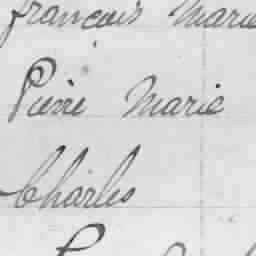 françois Marie
Pierre Marie
Charles